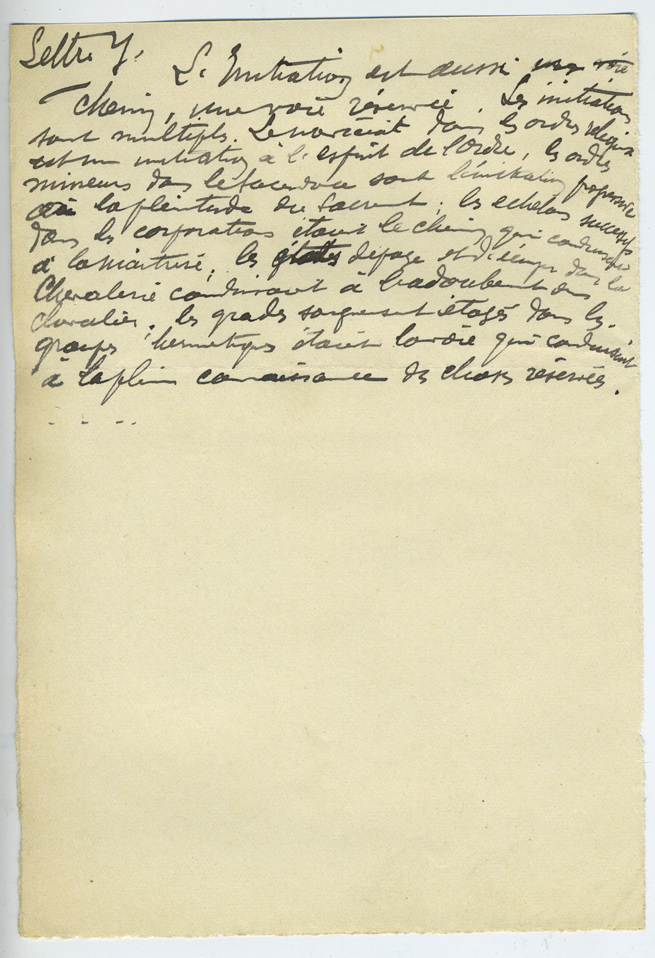 Lettre Y.
L'Initiation est aussi une voie
chemin, une voie réservée. Les initiations
sont multiples. Le noviciat dans les ordres religieux
est une initiation à l'esprit de l'Ordre, les ordres
mineurs dans le sacerdoce sont l'initiation progressive
à la plénitude du Sacrement; les echelons successifs
dans les corporations étaient le chemin qui conduisait
à la Maitrise; les de page et d'écuyer dans la
Chevalerie conduisaient à l'adoubement du
chevalier. les grades étagés dans les
groupes hermetiques étaient la voie qui conduisait
à la pleine connaissance des choses réservées.
. . . .